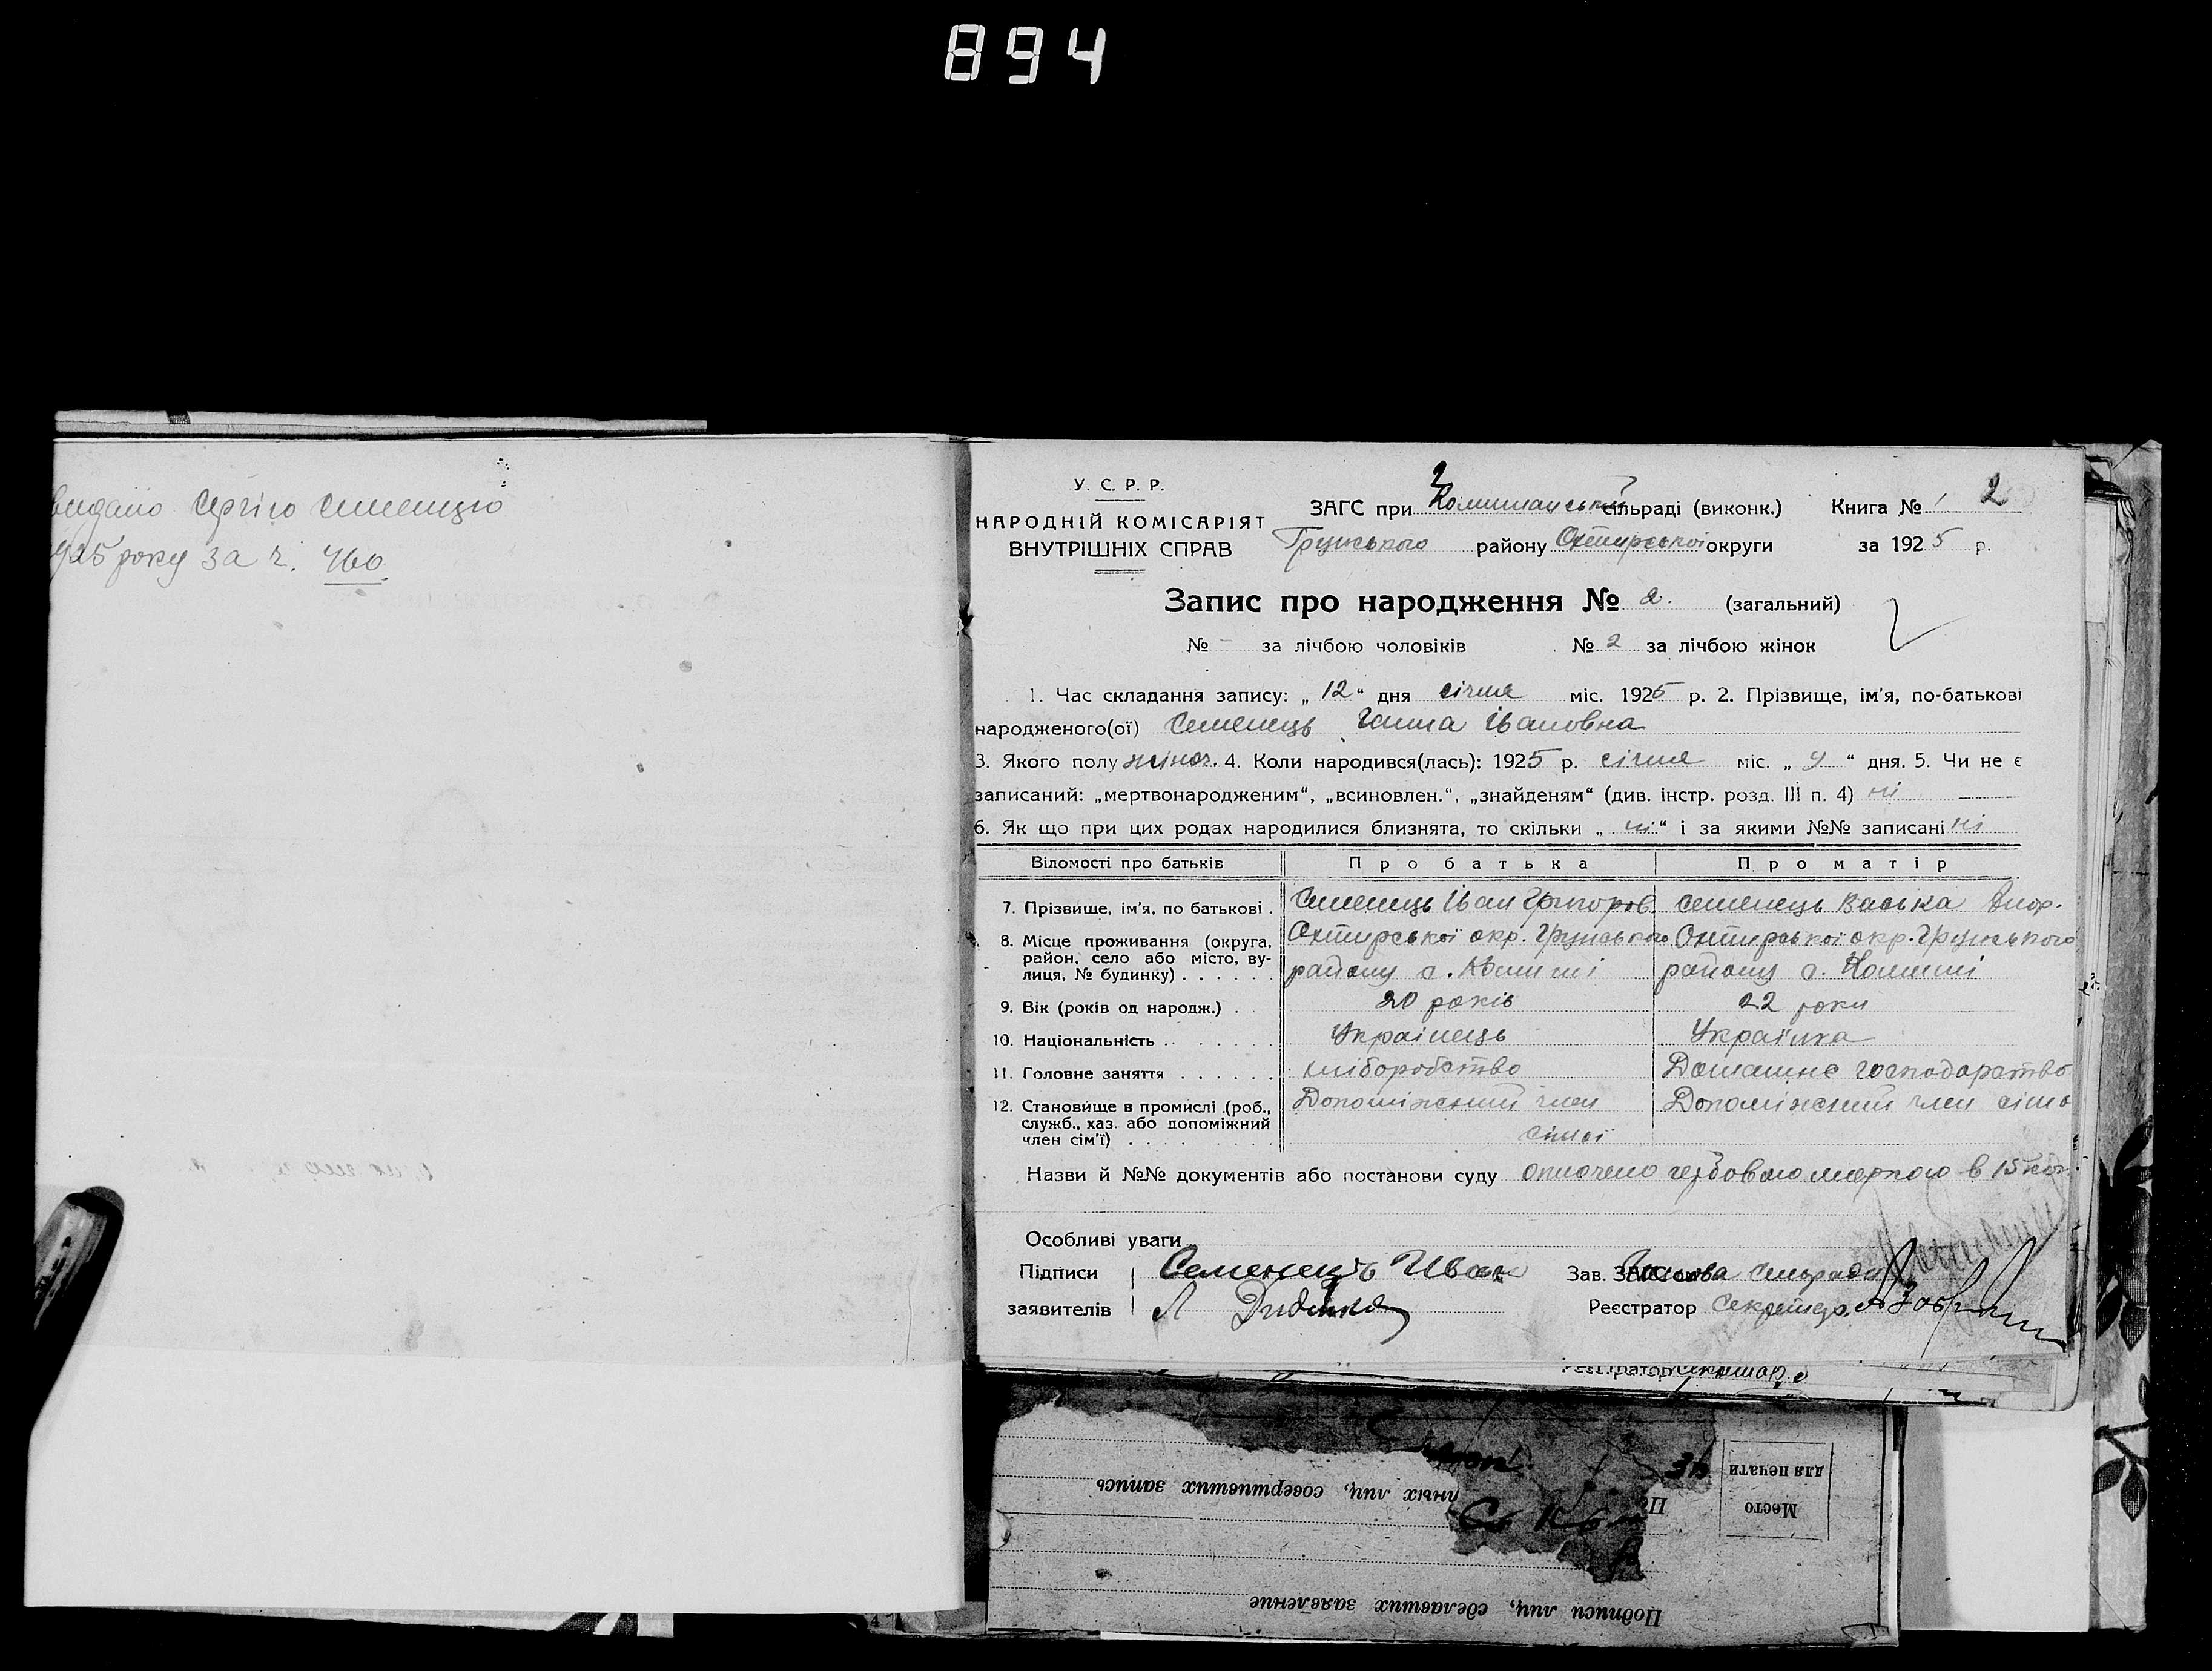 894
видано Сергію Семенцю
1925 року за ч. 460.
У. С. Р. Р.
НАРОДНІЙ КОМІСАРІЯТ
ВНУТРІШНІХ СПРАВ
ЗАГС при Комишанській сільраді (виконк.) Книга № 1 2
Грунського району Охтирської округи за 1925 р.
Запис про народження № 2. (загальний)
№ - за лічбою чоловіків № 2 за лічбою жінок
1. Час складання запису: „ 12 “ дня січня міс. 1925 р. 2. Прізвище, ім'я, по-батькові
народженого(ої) Семенець Ганна Івановна
3. Якого полу жіноч. 4. Коли народився(лась): 1925 р. січня міс. „ “ дня. 5. Чи не є
записаний: „мертвонародженим“, „всиновлен.“, „знайденям“ (див. інстр. розд. III п. 4) ні
6. Як що при цих родах народилися близнята, то скільки „ ні “ і за якими №№ записані ні
Відомості про батьків Про батька Про матір
7. Прізвище, ім'я, по батькові . Семенець Іван Григоров. Семенець Васька
8. Місце проживання (округа, район, село або місто, вулиця, № будинку) . . . . . Охтирської окр. Грунського Охтирської окр. Грунського
району с. Комиші району с. Комиші
9. Вік (років од народж.) . . 20 років 22 роки
10. Національність . . . . . . . Українець Українка
11. Головне заняття . . . . . . хліборобство Домашнє господарство
12. Становище в промислі (роб., служб., хаз. або допоміжний член сім'ї) . . . . . . . . . Допоміжний член Допоміжний член сімь
сімьї
Назви й №№ документів або постанови суду оплочено гербовою маркою в 15 коп.
Особливі уваги
Підписи Семенець Иван Зав. ЗАГС Голова Сільради
заявителів Л Дидька Реєстратор Секретар.
Реєстратор Секретар
Место для печати
лиц, совершивших запись
Подписи лиц, сделавших заявление